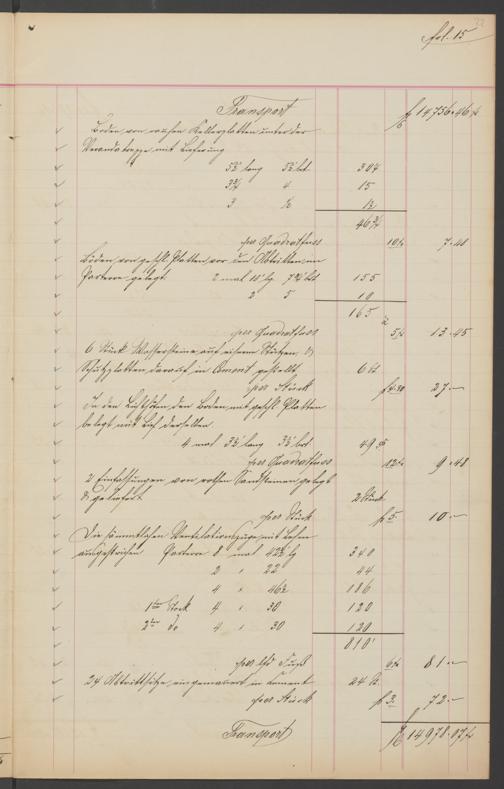 fol. 15
Transport f 14756.46
Boden von rauhen Kellerplatten unter der
Verandatreppe mit Lieferung
5½ lang 5½ brt. 30¼
3¾ 4 15
3 ½ 1½
46¾
per Quadratfuss 7.48
Böden von geschl. Platten vor den Abtritten im
Parterre gelegt 2 mal 10' lg. 7¾ brt 155
2 5 10
165
per Quadratfuss 13.45
6 Stück Wassersteine auf eisern Stützen &
Schutzplatten darauf in Cement gestellt 6 St
per Stück f 4.50 27.—
In den Lichthöfen den Boden mit geschl. Platten
belegt mit derselben
4 mal 3½ lang 3½ brt. 49
per Quadratfuss 9.48
2 Einfassungen von rothen Sandsteinen gelegt
& geliefert 2 Stück
per Stück f 5. 10.—
Die sämmtlichen Ventilationszüge mit Lehm
ausgestrichen Parterre 8 mal 42½ lg 340
2 " 22 44
4 " 46½ 186
1ter Stock 4 " 30 120
2ter do 4 " 30 120
810'
per lfd Fuss 81.—
24 Abtrittsitze eingemauert in Cement 24 St.
per Stück f 3. 72.—
Transport f 14978.07